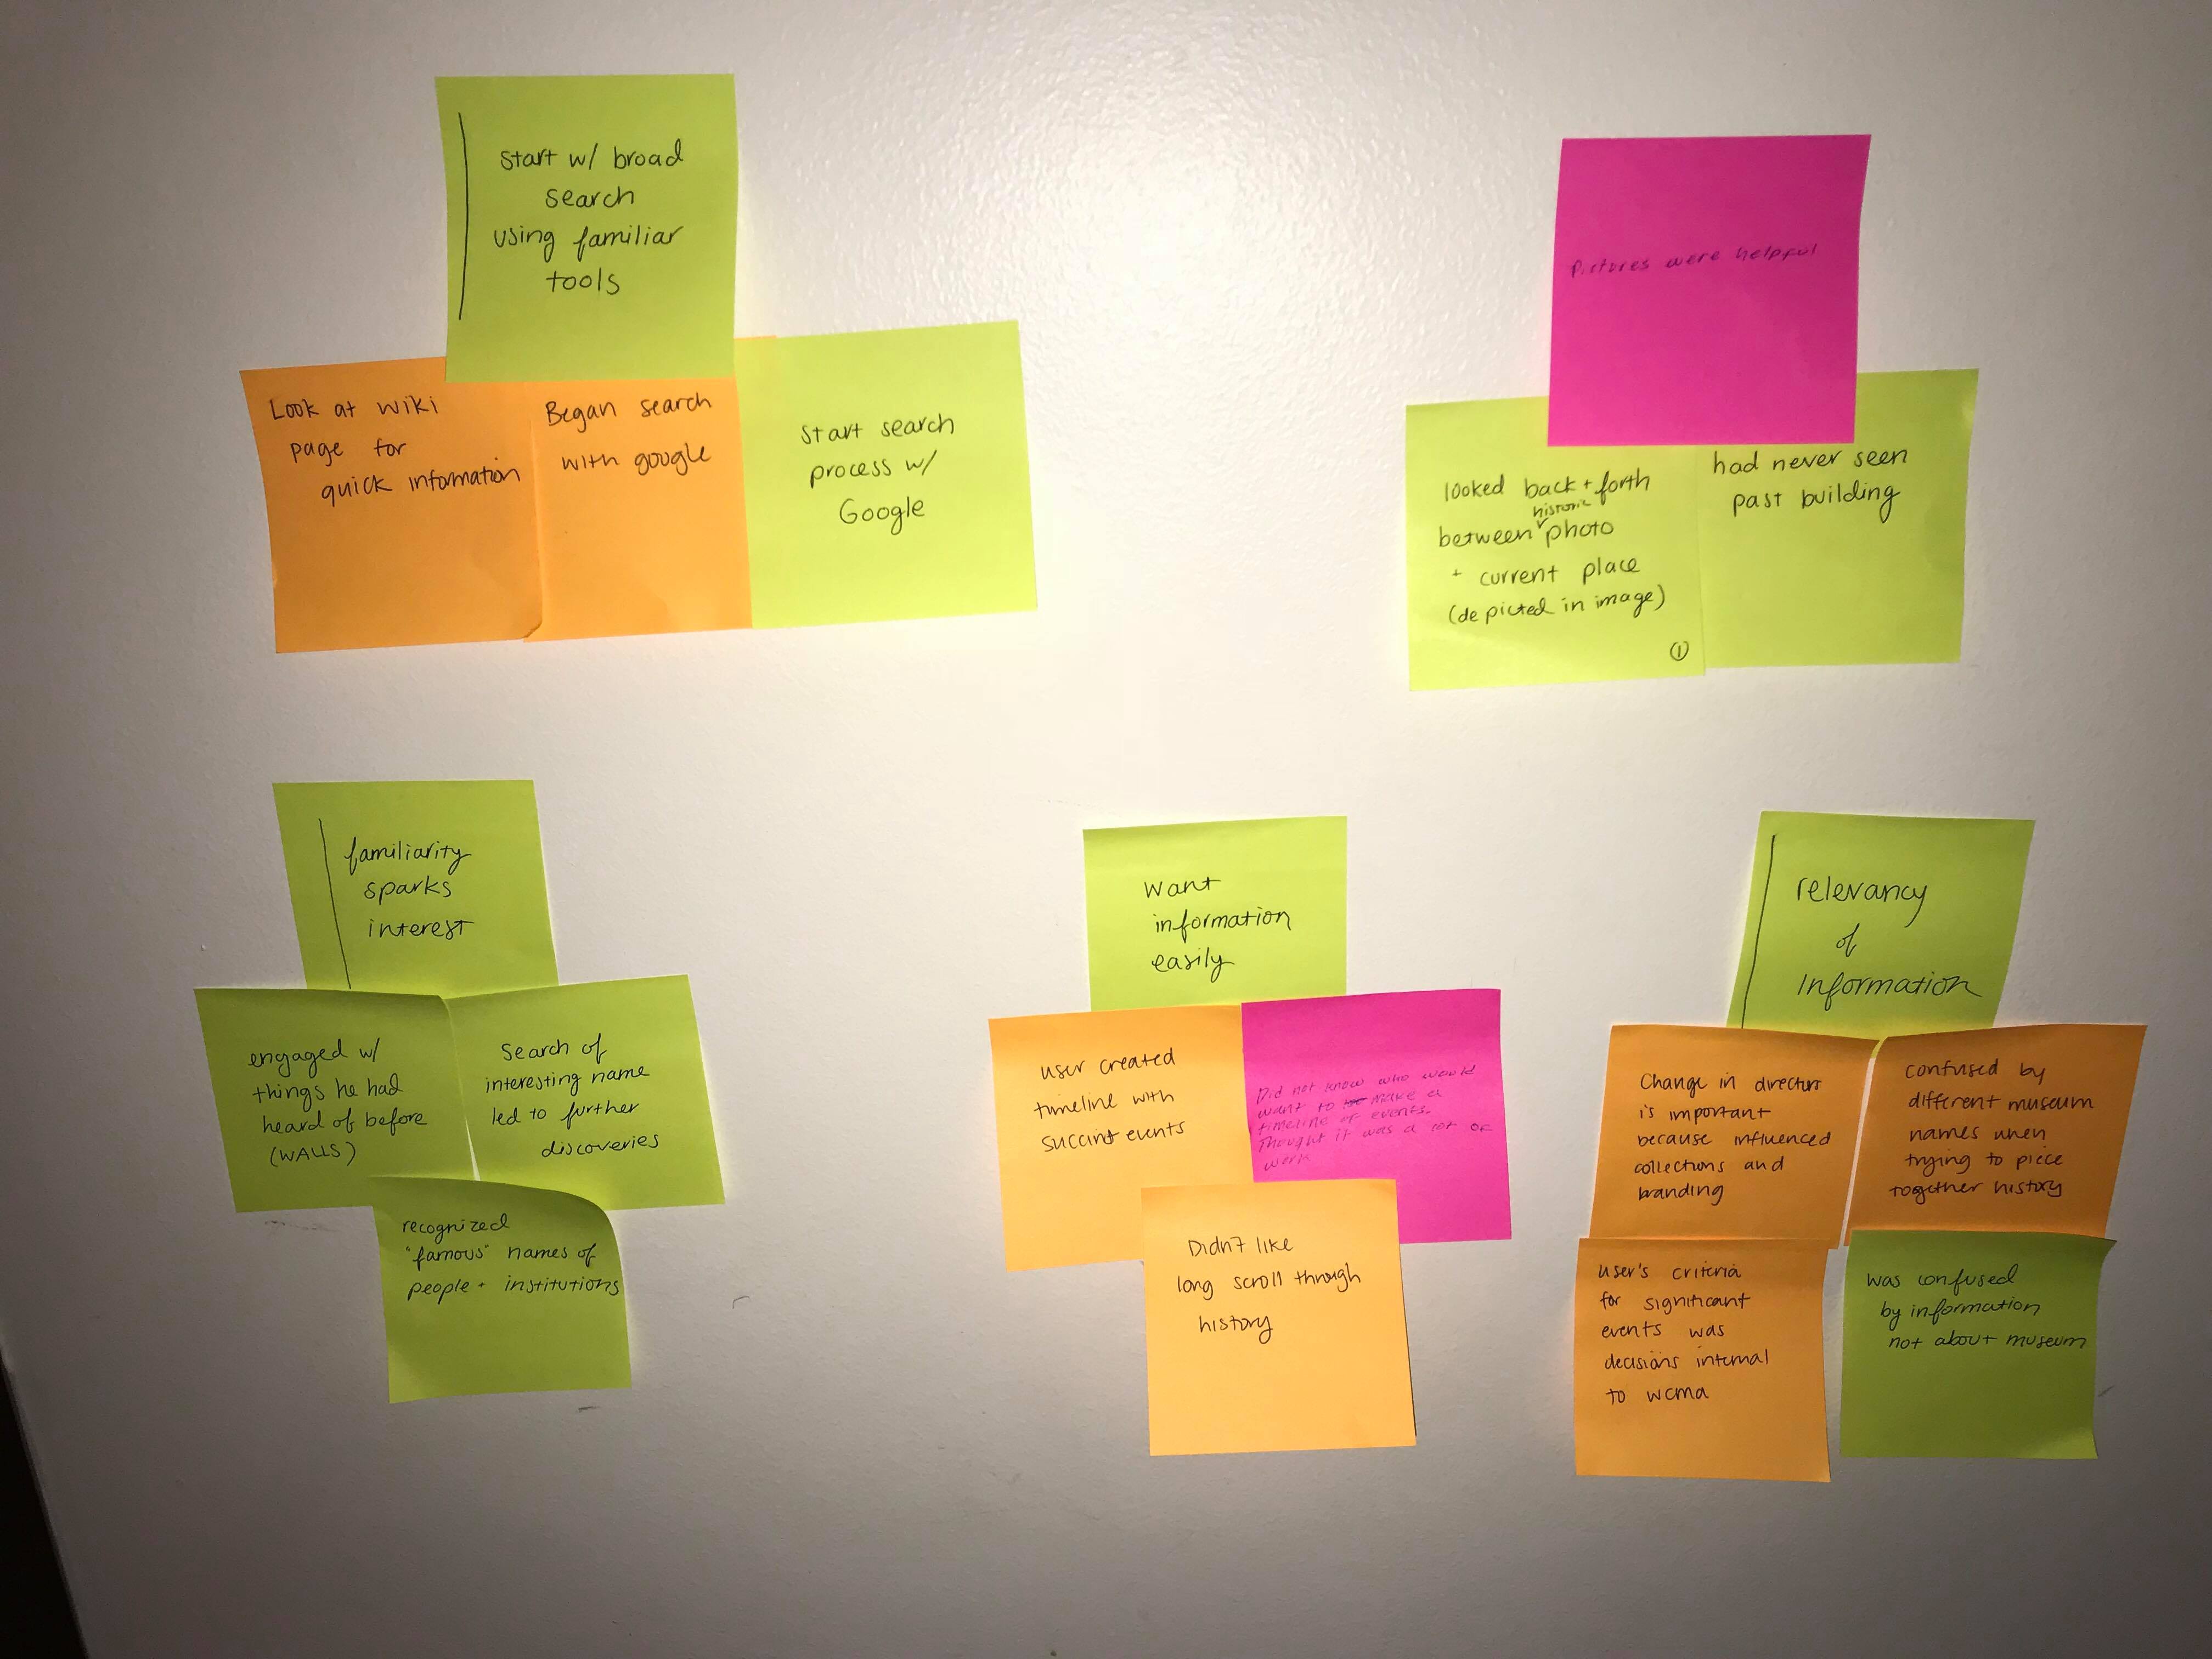 Start w/ broad
search
using familiar
tools
Look at wiki
page for
quick information
Began search
with google
Start search
process w/
Google
Pictures were helpful
looked back + forth
historic
between photo
+ current place
(depicted in image)
1
had never seen
past building
familiarity
sparks
interest
engaged w/
things he had
heard of before
(WALLS)
Search of
interesting name
led to further
discoveries
recognized
"famous" names of
people + institutions
want
information
easily
user created
timeline with
succint events
Did not know who would
want to make a
timeline of events.
Thought it was a lot of
work
Didn't like
long scroll through
history
relevancy
of
Information
Change in directors
is important
because influenced
collections and
branding
confused by
different museum
names when
trying to piece
together history
user's criteria
for significant
events was
decisions internal
to wcma
was confused
by information
not about museum